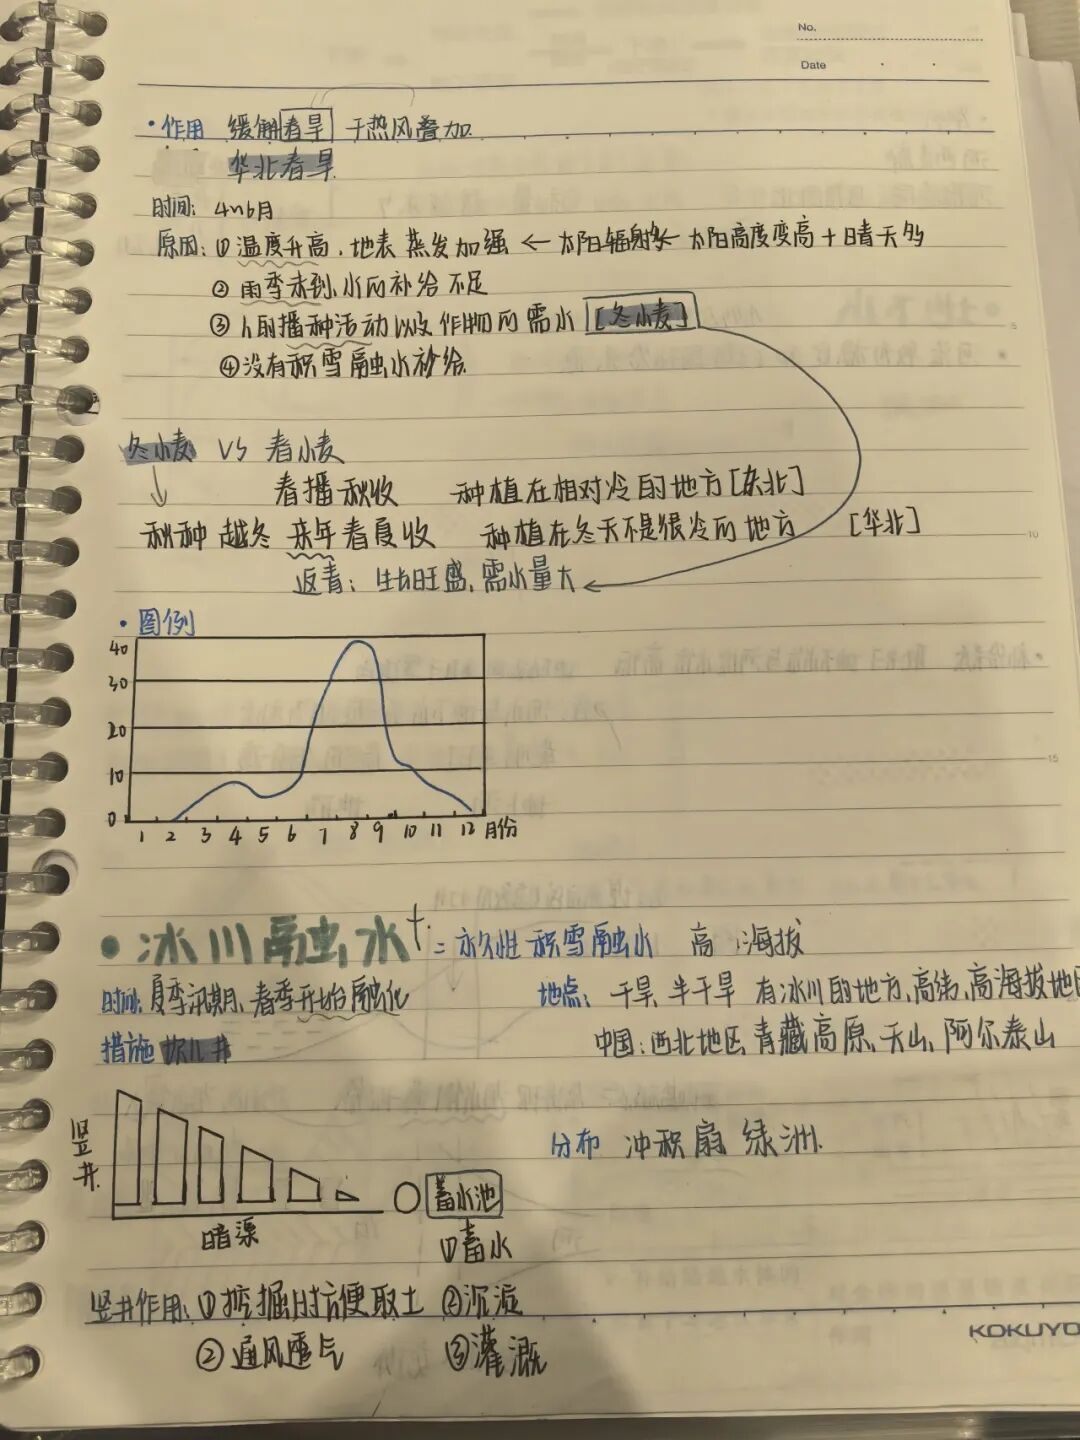 No.
Date
·作用 缓解春旱 干热风叠加
华北春旱
时间: 4~6月
原因: ①温度升高,地表蒸发加强 ← 太阳辐射多 ← 太阳高度变高+晴天多
②雨季未到,水的补给不足
③人的播种活动以及作物的需水 [冬小麦]
④没有积雪融水补给
冬小麦 VS 春小麦
春播秋收 种植在相对冷的地方[东北]
秋种 越冬 来年春夏收 种植在冬天不是很冷的地方 [华北]
返青: 生长旺盛,需水量大
·图例
40
30
20
10
0
1 2 3 4 5 6 7 8 9 10 11 12 月份
·冰川融水 = 永久性积雪融水 高海拔
时间: 夏季汛期,春季开始融化 地点: 干旱,半干旱 有冰川的地方,高纬,高海拔地区
措施 坎儿井 中国:西北地区,青藏高原,天山,阿尔泰山
竖井
分布 冲积扇 绿洲.
蓄水池
暗渠
①蓄水
竖井作用: ①挖掘时方便取土 ②沉淀
②通风透气 ③灌溉
5
10
15
KOKUYO